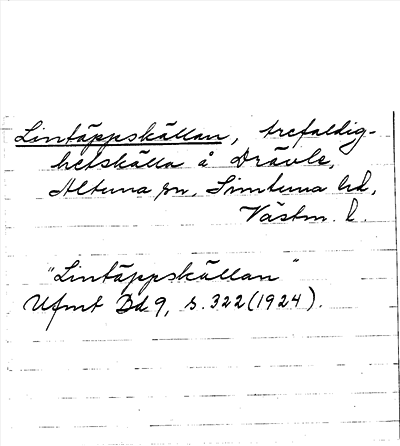 Lintäppskällan, trefaldig-
hetskälla å Drävle,
Altuna sn, Simtuna hd,
Västm. l.
"Lintäppskällan"
Ufmt Bd 9, s. 322 (1924).